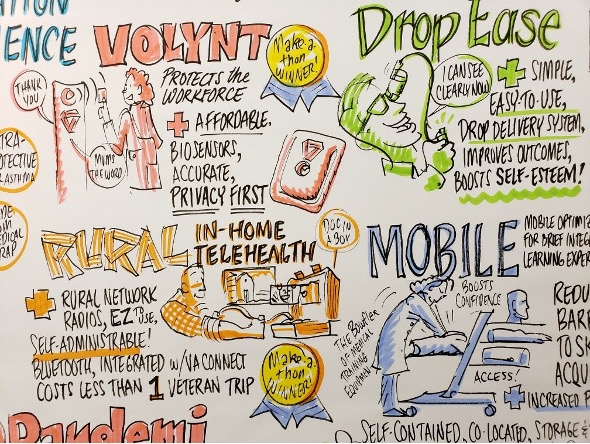 ATION
IENCE
VOLYNT
PROTECTS the
WORKFORCE
+ AFFORDABLE.
BIOSENSORS,
ACCURATE,
PRIVACY FIRST
THANK
YOU
MUMS
THE WORD
Make-a-
thon
WINNER!
Drop Ease
I CAN SEE
CLEARLY NOW
+ SIMPLE,
EASY-TO-USE,
DROP DELIVERY SYSTEM,
IMPROVES OUTCOMES,
BOOSTS SELF-ESTEEM!
TRA-
OTECTIVE
ASTHMA
RAP
RURAL IN-HOME
TELEHEALTH
DOC IN
A BOX
+ RURAL NETWORK
RADIOS, EZ To Use,
SELF-ADMINISTRABLE!
BLUETOOTH, INTEGRATED W/VA CONNECT
COSTS LESS THAN 1 VETERAN TRIP
Make-a-
thon
WINNER!
MOBILE
MOBILE OPTIMIZ
FOR BRIEF INTEG
LEARNING EXPER
BOOSTS
CONFIDENCE
OF MEDICAL
TRAINING
EQUIPMENT
ACCESS!
REDU
BARR
TO SK
ACQU
+ INCREASED P
SELF-CONTAINED, CO-LOCATED, STORAGE &
Pandemi